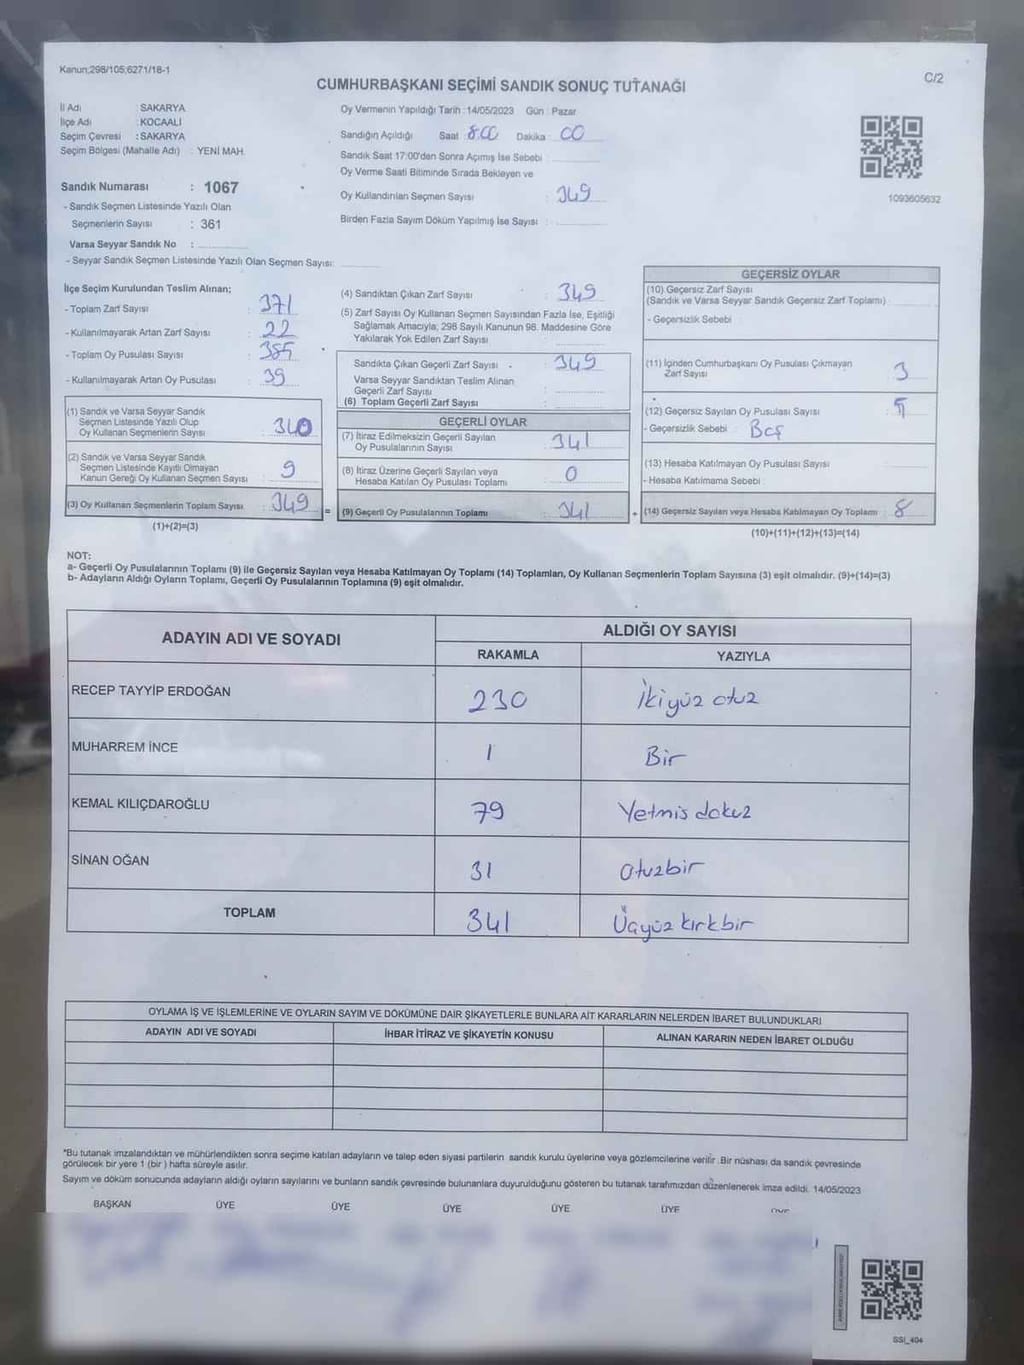 Kanun;298/105;6271/18-1
C/2
CUMHURBAŞKANI SEÇİMİ SANDIK SONUÇ TUTANAĞI
İl Adı : SAKARYA
İlçe Adı : KOCAALİ
Seçim Çevresi : SAKARYA
Seçim Bölgesi (Mahalle Adı) : YENİ MAH.
Sandık Numarası : 1067
- Sandık Seçmen Listesinde Yazılı Olan
Seçmenlerin Sayısı : 361
Varsa Seyyar Sandık No :
- Seyyar Sandık Seçmen Listesinde Yazılı Olan Seçmen Sayısı:
Oy Vermenin Yapıldığı Tarih : 14/05/2023 Gün : Pazar
Sandığın Açıldığı Saat 8.00 Dakika 00
Sandık Saat 17:00'den Sonra Açımış İse Sebebi :
Oy Verme Saati Bitiminde Sırada Bekleyen ve
Oy Kullandırılan Seçmen Sayısı : 349
Birden Fazla Sayım Döküm Yapılmış İse Sayısı :
1093605632
İlçe Seçim Kurulundan Teslim Alınan;
- Toplam Zarf Sayısı : 371
- Kullanılmayarak Artan Zarf Sayısı : 22
- Toplam Oy Pusulası Sayısı : 385
- Kullanılmayarak Artan Oy Pusulası : 39
(1) Sandık ve Varsa Seyyar Sandık
Seçmen Listesinde Yazılı Olup
Oy Kullanan Seçmenlerin Sayısı : 340
(2) Sandık ve Varsa Seyyar Sandık
Seçmen Listesinde Kayıtlı Olmayan
Kanun Gereği Oy Kullanan Seçmen Sayısı : 9
(3) Oy Kullanan Seçmenlerin Toplam Sayısı : 349
(1)+(2)=(3)
=
(4) Sandıktan Çıkan Zarf Sayısı : 349
(5) Zarf Sayısı Oy Kullanan Seçmen Sayısından Fazla İse, Eşitliği
Sağlamak Amacıyla, 298 Sayılı Kanunun 98. Maddesine Göre
Yakılarak Yok Edilen Zarf Sayısı :
Sandıkta Çıkan Geçerli Zarf Sayısı : 349
Varsa Seyyar Sandıktan Teslim Alınan
Geçerli Zarf Sayısı :
(6) Toplam Geçerli Zarf Sayısı :
GEÇERLİ OYLAR
(7) İtiraz Edilmeksizin Geçerli Sayılan
Oy Pusulalarının Sayısı : 341
(8) İtiraz Üzerine Geçerli Sayılan veya
Hesaba Katılan Oy Pusulası Toplamı : 0
(9) Geçerli Oy Pusulalarının Toplamı : 341
+
GEÇERSİZ OYLAR
(10) Geçersiz Zarf Sayısı
(Sandık ve Varsa Seyyar Sandık Geçersiz Zarf Toplamı) :
- Geçersizlik Sebebi :
(11) İçinden Cumhurbaşkanı Oy Pusulası Çıkmayan
Zarf Sayısı : 3
(12) Geçersiz Sayılan Oy Pusulası Sayısı : 5
- Geçersizlik Sebebi : Boş
(13) Hesaba Katılmayan Oy Pusulası Sayısı :
- Hesaba Katılmama Sebebi :
(14) Geçersiz Sayılan veya Hesaba Katılmayan Oy Toplamı : 8
(10)+(11)+(12)+(13)=(14)
NOT:
a- Geçerli Oy Pusulalarının Toplamı (9) ile Geçersiz Sayılan veya Hesaba Katılmayan Oy Toplamı (14) Toplamları, Oy Kullanan Seçmenlerin Toplam Sayısına (3) eşit olmalıdır. (9)+(14)=(3)
b- Adayların Aldığı Oyların Toplamı, Geçerli Oy Pusulalarının Toplamına (9) eşit olmalıdır.
ADAYIN ADI VE SOYADI
ALDIĞI OY SAYISI
RAKAMLA YAZIYLA
RECEP TAYYİP ERDOĞAN 230 İkiyüz otuz
MUHARREM İNCE 1 Bir
KEMAL KILIÇDAROĞLU 79 Yetmis dokuz
SİNAN OĞAN 31 otuzbir
TOPLAM 341 Üçyüz kırkbir
OYLAMA İŞ VE İŞLEMLERİNE VE OYLARIN SAYIM VE DÖKÜMÜNE DAİR ŞİKAYETLERLE BUNLARA AİT KARARLARIN NELERDEN İBARET BULUNDUKLARI
ADAYIN ADI VE SOYADI İHBAR İTİRAZ VE ŞİKAYETİN KONUSU ALINAN KARARIN NEDEN İBARET OLDUĞU
*Bu tutanak imzalandıktan ve mühürlendikten sonra seçime katılan adayların ve talep eden siyasi partilerin sandık kurulu üyelerine veya gözlemcilerine verilir. Bir nüshası da sandık çevresinde
görülecek bir yere 1 (bir) hafta süreyle asılır.
Sayım ve döküm sonucunda adayların aldığı oyların sayılarını ve bunların sandık çevresinde bulunanlara duyurulduğunu gösteren bu tutanak tarafımızdan düzenlenerek imza edildi. 14/05/2023
BAŞKAN ÜYE ÜYE ÜYE ÜYE ÜYE ÜYE
SSI_404